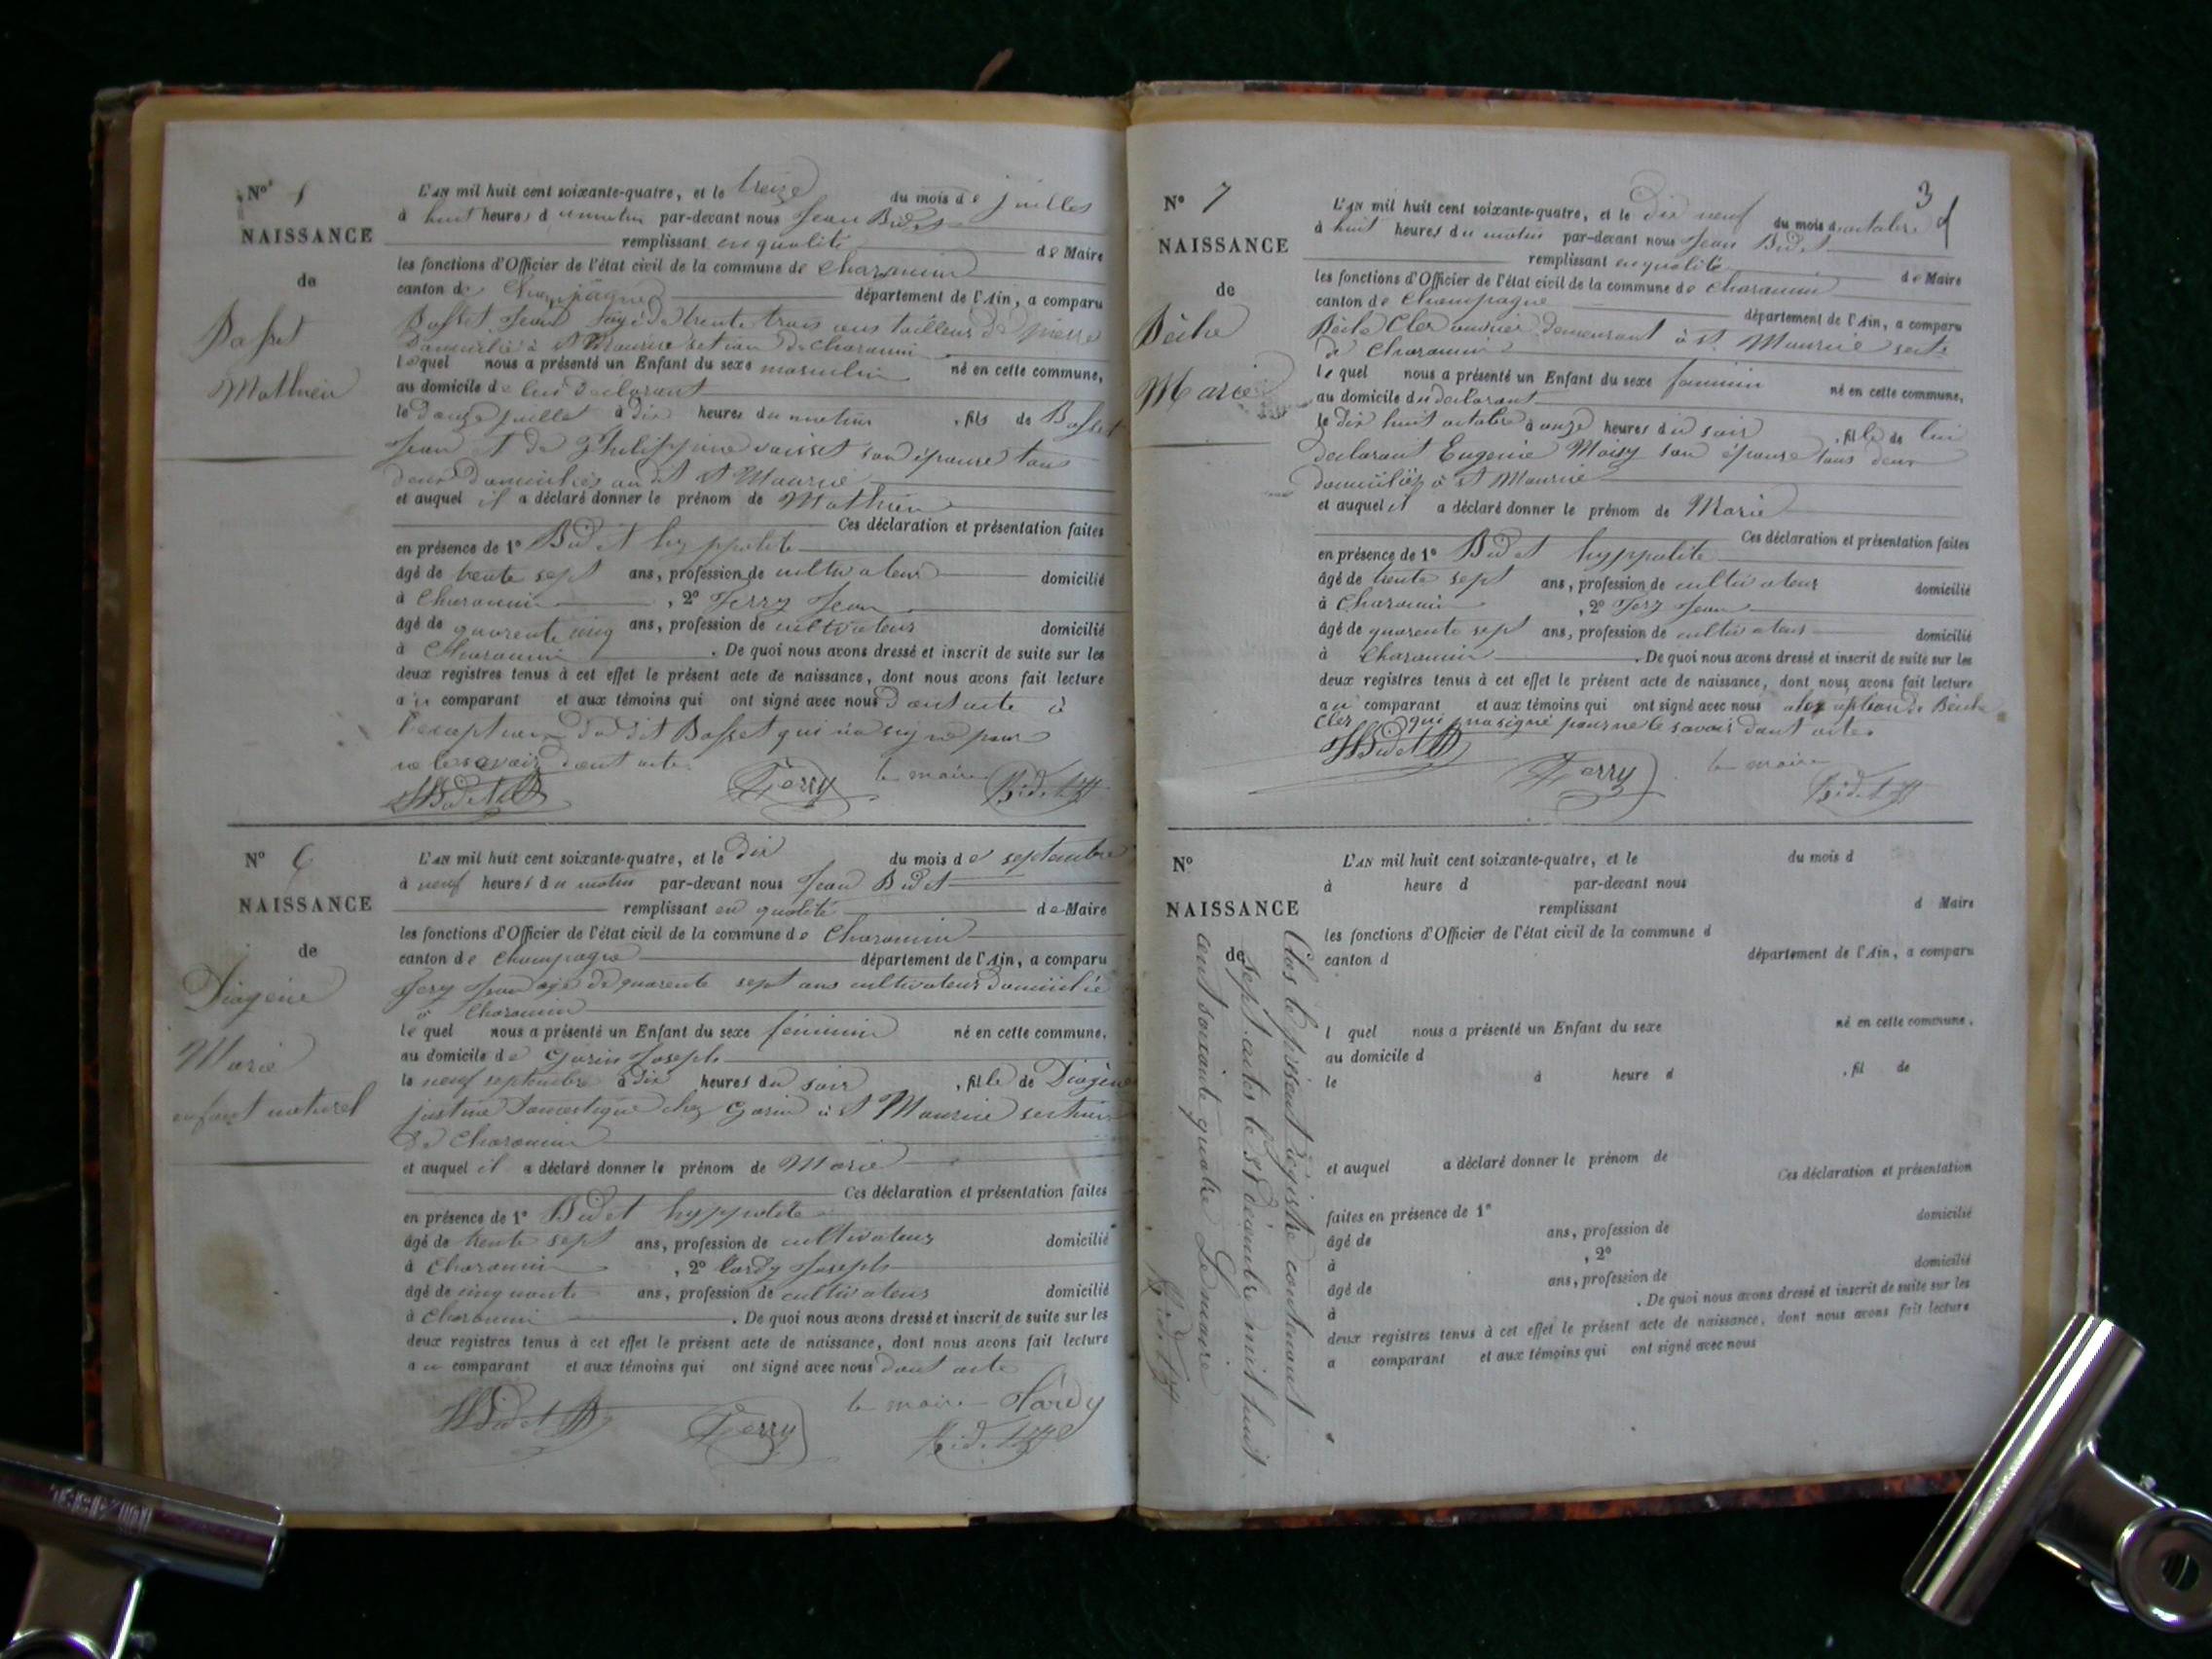 N° 5
NAISSANCE
de
Basset
Mathieu
L'AN mil huit cent soixante-quatre, et le treize du mois de juillet
à huit heures du matin par-devant nous Jean Bidet
remplissant en qualité de Maire
les fonctions d'Officier de l'état civil de la commune de Charancin
canton de Champagne département de l'Ain, a comparu
Basset Jean agé de trente trois ans tailleur de pierre
domicilié à St Maurice section de charancin
lequel nous a présenté un Enfant du sexe masculin né en cette commune,
au domicile de lui déclarant
le douze juillet à dix heures du matin, fils de Basset
Jean et de Philippine son épouse tous
deux domiciliés au dit St Maurice
et auquel il a déclaré donner le prénom de Mathieu
Ces déclaration et présentation faites
en présence de 1° Bidet hyppolite
âgé de trente sept ans, profession de cultivateur domicilié
à Charancin, 2° Ferry Jean
âgé de quarente cinq ans, profession de cultivateur domicilié
à Charancin. De quoi nous avons dressé et inscrit de suite sur les
deux registres tenus à cet effet le présent acte de naissance, dont nous avons fait lecture
au comparant et aux témoins qui ont signé avec nous dont acte à
l'exception du dit Basset qui n'a signé pour
ne le savoir dont acte
HBidet Ferry le maire Bidet
N° 6
NAISSANCE
de
Diogène
Marie
enfant naturel
L'AN mil huit cent soixante-quatre, et le dix du mois de septembre
à neuf heures du matin par-devant nous Jean Bidet
remplissant en qualité de Maire
les fonctions d'Officier de l'état civil de la commune de Charancin
canton de Champagne département de l'Ain, a comparu
Jean agé de quarente sept ans cultivateur domicilié
à Charancin
lequel nous a présenté un Enfant du sexe féminin né en cette commune,
au domicile de Garin Joseph
le neuf septembre à dix heures du soir, fille de Diogène
justine domestique chez Garin à St Maurice section
de Charancin
et auquel il a déclaré donner le prénom de Marie
Ces déclaration et présentation faites
en présence de 1° Bidet hyppolite
âgé de trente sept ans, profession de cultivateur domicilié
à charancin, 2° tardy Joseph
âgé de cinquante ans, profession de cultivateur domicilié
à Charancin. De quoi nous avons dressé et inscrit de suite sur les
deux registres tenus à cet effet le présent acte de naissance, dont nous avons fait lecture
au comparant et aux témoins qui ont signé avec nous dont acte
HBidet Ferry le maire Tardy
Bidet
3
N° 7
NAISSANCE
de
Marie
L'AN mil huit cent soixante-quatre, et le dix neuf du mois d'octobre
à huit heures du matin par-devant nous Jean Bidet
remplissant en qualité de Maire
les fonctions d'Officier de l'état civil de la commune de Charancin
canton de Champagne département de l'Ain, a comparu
ouvrier demeurant à St Maurice
de Charancin
lequel nous a présenté un Enfant du sexe féminin né en cette commune,
au domicile du déclarant
le dix huit octobre à onze heures du soir, fille de lui
declarant Eugenie Moisy son épouse tous deux
domiciliés à St Maurice
et auquel il a déclaré donner le prénom de Marie
Ces déclaration et présentation faites
en présence de 1° Bidet hyppolite
âgé de trente sept ans, profession de cultivateur domicilié
à Charancin, 2° Jean
âgé de quarente sept ans, profession de cultivateur domicilié
à Charancin. De quoi nous avons dressé et inscrit de suite sur les
deux registres tenus à cet effet le présent acte de naissance, dont nous avons fait lecture
au comparant et aux témoins qui ont signé avec nous
qui n'a signé pour ne le savoir dont acte
HBidet Ferry le maire Bidet
N°
NAISSANCE
de
L'AN mil huit cent soixante-quatre, et le du mois d
à heure d par-devant nous
remplissant d Maire
les fonctions d'Officier de l'état civil de la commune d
canton d département de l'Ain, a comparu
l quel nous a présenté un Enfant du sexe né en cette commune,
au domicile d
le à heure d, fil de
et auquel a déclaré donner le prénom de
Ces déclaration et présentation
faites en présence de 1°
âgé de ans, profession de domicilié
à, 2°
âgé de ans, profession de domicilié
à. De quoi nous avons dressé et inscrit de suite sur les
deux registres tenus à cet effet le présent acte de naissance, dont nous avons fait lecture
a comparant et aux témoins qui ont signé avec nous
Clos le présent registre contenant
sept actes le 31 décembre mil huit
cent soixante quatre Le maire
Bidet